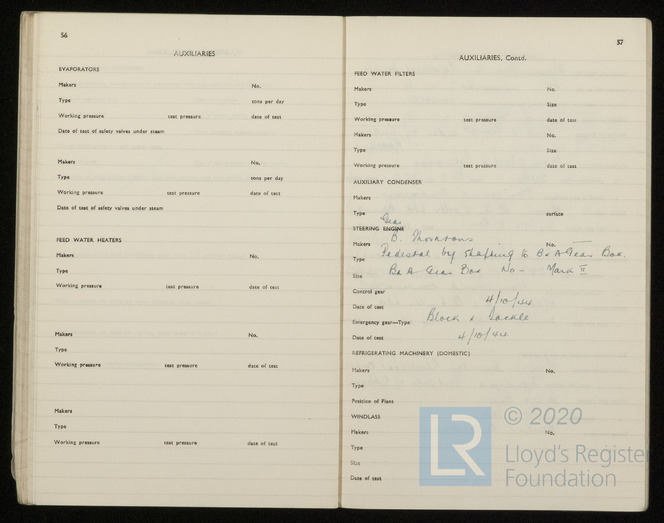 56
AUXILIARIES
EVAPORATORS
Makers No.
Type tons per day
Working pressure test pressure date of test
Date of test of safety valves under steam
Makers No.
Type tons per day
Working pressure test pressure date of test
Date of test of safety valves under steam
FEED WATER HEATERS
Makers No.
Type
Working pressure test pressure date of test
Makers No.
Type
Working pressure test pressure date of test
Makers
Type
Working pressure test pressure date of test
57
AUXILIARIES, Contd.
FEED WATER FILTERS
Makers No.
Type Size
Working pressure test pressure date of test
Makers No.
Type Size
Working pressure test pressure date of test
AUXILIARY CONDENSER
Makers
Type surface
Gear
STEERING ENGINE
Makers B. Thorntons No. —
Type Pedestal by shafting to B & A Gear Box.
Size B & A Gear Box No – Mark II
Control gear
Date of test 4/10/44
Emergency gear—Type Block & Tackle
Date of test 4/10/44
REFRIGERATING MACHINERY (DOMESTIC)
Makers No.
Type
Position of Plant
WINDLASS
Makers No.
Type
Size
Date of test
LR
© 2020
Lloyd's Register
Foundation